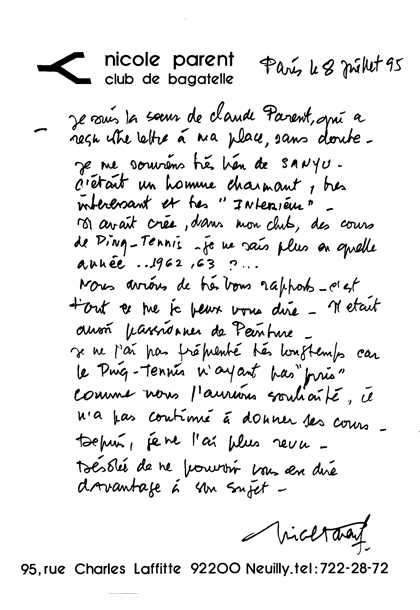 nicole parent
club de bagatelle
Paris le 8 Juillet 95
Je suis la sœur de claude Parent, qui a
reçu votre lettre à ma place, sans doute -
Je me souviens très bien de SANYU -
c'était un homme charmant, très
intéressant et très "Intérieur" -
Il avait crée, dans mon club, des cours
de Ping-Tennis - je ne sais plus en quelle
année ... 1962, 63 ? ...
Nous avions de très bons rapports - c'est
tout ce que je peux vous dire - Il était
aussi passionné de Peinture -
Je ne l'ai pas fréquenté très longtemps car
le Ping-Tennis n'ayant pas "pris"
comme nous l'aurions souhaité, il
n'a pas continué à donner ses cours -
Depuis, je ne l'ai plus revu -
Désolée de ne pouvoir vous en dire
davantage à son sujet -
95, rue Charles Laffitte 92200 Neuilly. tel: 722-28-72